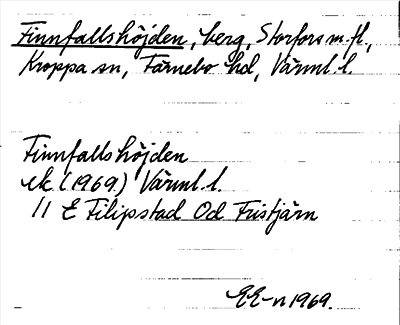 Finnfallshöjden, berg, Storfors m. fl.,
Kroppa sn, Färnebo hd, Värml. l.
Finnfallshöjden
ek. (1969.) Värml. l.
11 E Filipstad Od Fristjärn
EE-n 1969.